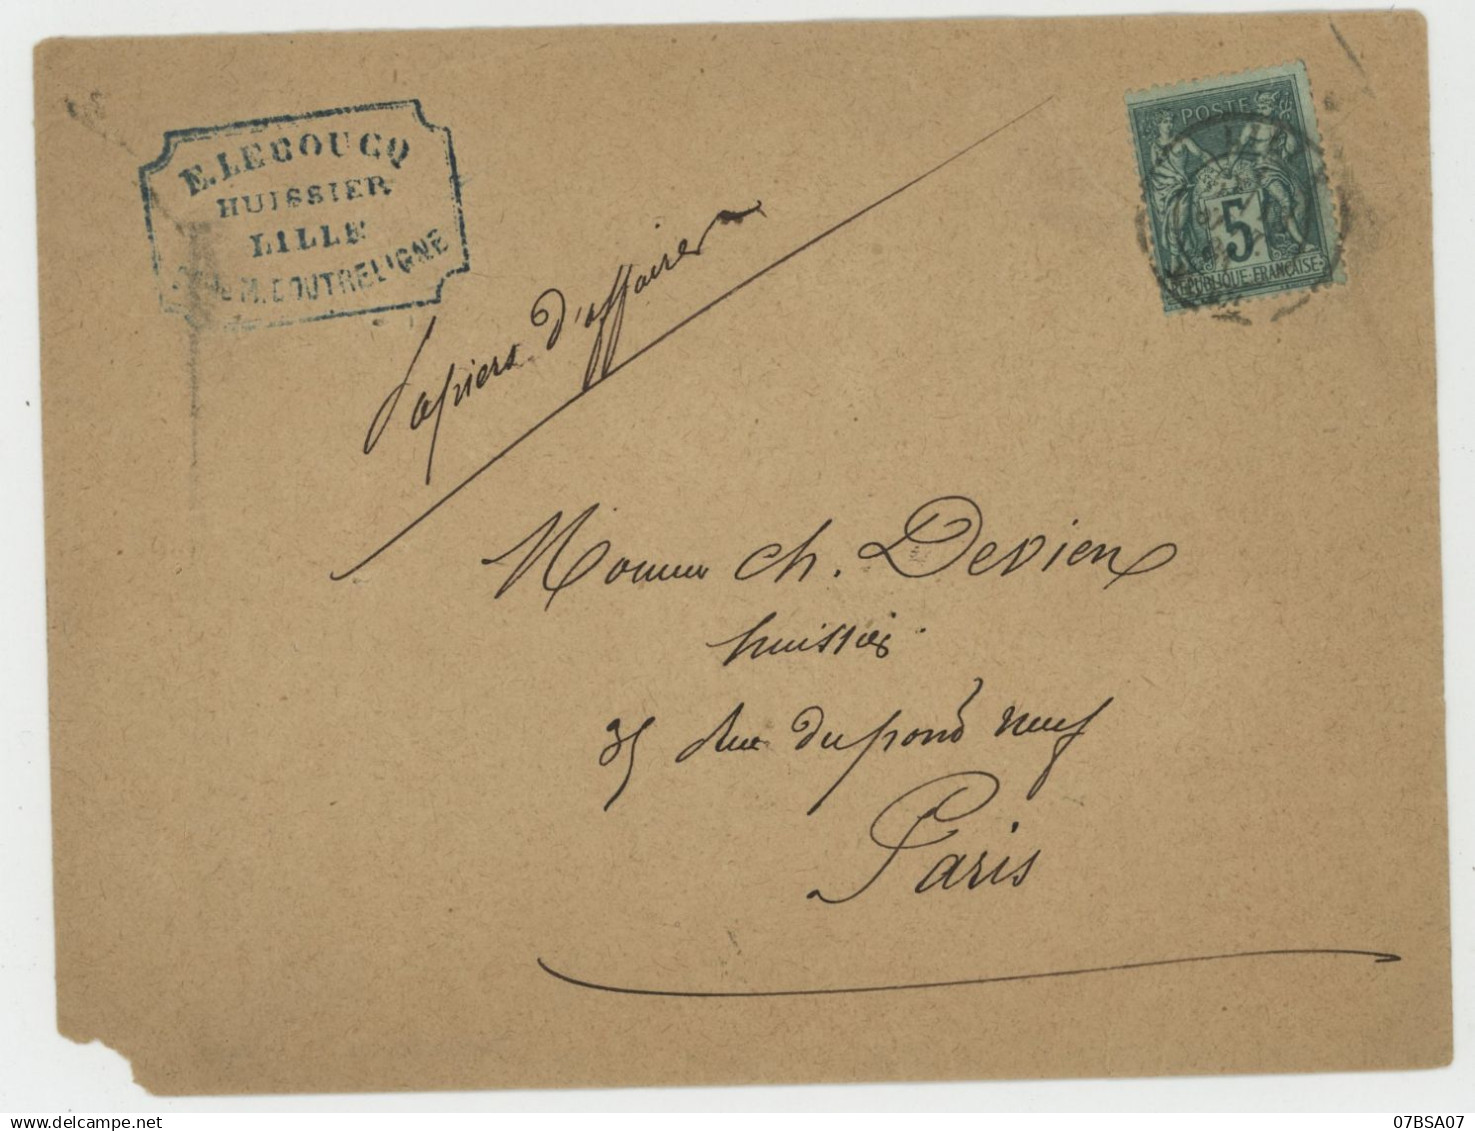 E. LEBOUCQ
HUISSIER
LILLE
M. BOUTRELIGNE
POSTE
5
REPUBLIQUE FRANÇAISE
Papiers d'affaires
Monsieur Ch. Devien
huissier
35 Rue du pond neuf
Paris
07BSA07